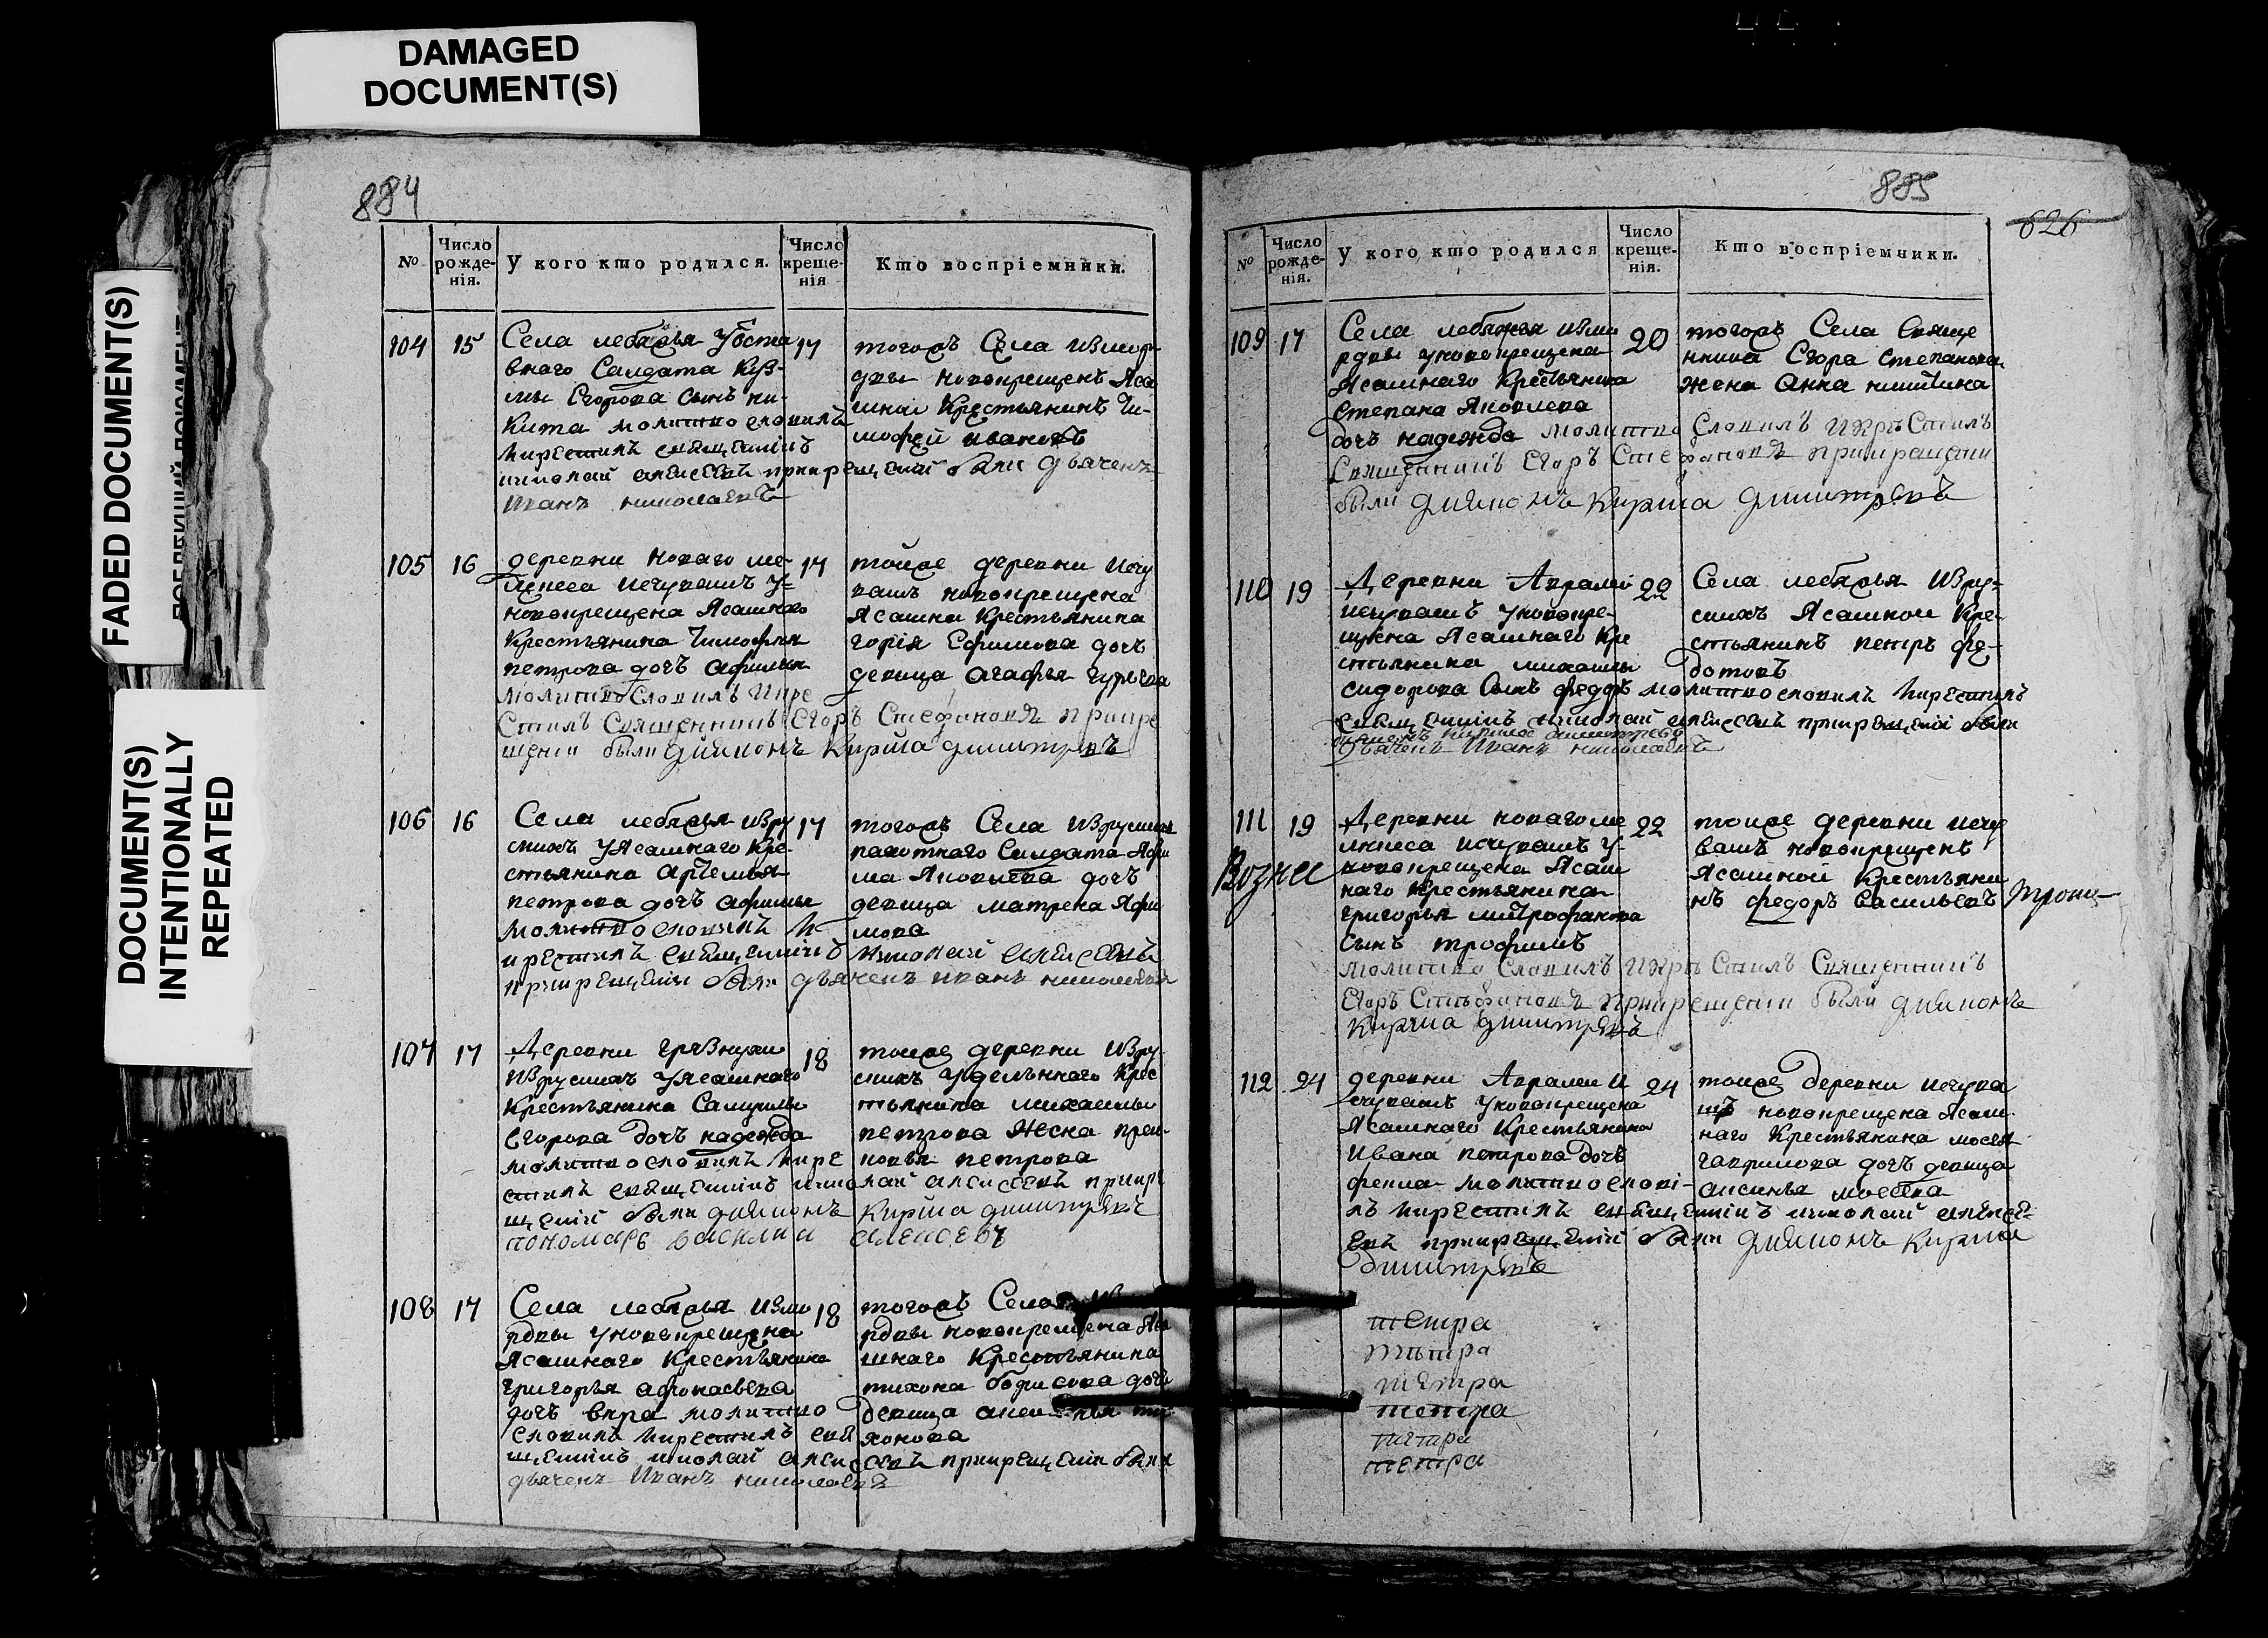 DAMAGED
DOCUMENT(S)
FADED DOCUMENT(S)
DOCUMENT(S)
INTENTIONALLY
REPEATED
884
№
Число рожде-нія.
У кого кто родился.
Число креще-нія
Кто воспріемники.
104 15 17
Села лебяжья Уотста
внаго Салдата Куз-
мы Егорова Сынъ ни-
кита молитво словилъ
и крестилъ священникъ
николай алексеевъ при крещении были дьяченъ
Иванъ николаевъ
тогожъ Села измор-
двы новокрещенъ Яса
шной Крестьянинъ Ти-
мофей ивановъ
105 16 17
деревни новаго ме-
лекеса исчувашъ у-
новокрещена Ясашнаго
Крестьянина Тимофея
петрова дочъ афимья
Молитво Словилъ И кре
Стилъ Священникъ Егоръ Стефановъ При кре
щении были дьяконъ Кирила димитревъ
тойже деревни исчу
вашъ новокрещена
Ясашна Крестьянина
Ефимова дочъ
девица Агафья
106 16 17
Села лебяжья изру
скихъ уЯсашнаго Кре-
стьянина Артемья
петрова дочъ афимья
Молитво словилъ и
крестилъ священникъ николай алексеевъ
при крещении были дьяченъ иванъ николаевъ
тогожъ Села изрускихъ
Салдата Яфи
ма Яковлева дочъ
девица матрена Яфи
мова
107 17 18
Деревни грязнухи
изрускихъ уЯсашнаго
Крестьянина Самуилы
Егорова дочъ надежда
молитво словилъ и кре
стилъ священникъ николай алексеевъ при кре
щении были дьяконъ Кирила димитревъ
пономарь василий алексеевъ
тойже деревни изру
скихъ удельнаго Крес
тьянина михаилы
петрова жена прас-
ковья петрова
108 17 18
Села лебяжья измо
рдвы уновокрещена
Ясашнаго Крестьянина
григорья афонасьева
дочъ вера молитво
словилъ и крестилъ свя
щенникъ николай алексеевъ при крещении были
дьяченъ Иванъ николаевъ
тогожъ Села
рдвы новокрещена Яса
шнаго Крестьянина
тихона борисова дочъ
девица ти
хонова
885
626
№
Число рожде-нія.
У кого кто родился
Число креще-нія.
Кто воспріемники.
109 17 20
Села лебяжья измо
рдвы уновокрещена
Ясашнаго Крестьянина
Степана Яковлева
дочъ надежда Молитво Словилъ И Кре Стилъ
Священникъ Егоръ Стефановъ При крещении
были дьяконъ Кирила димитревъ
тогожъ Села Свяще
нника Егора Степанова
жена Анна никитина
110 19 22
Деревни Авралей
исчувашъ уновокре-
щена Ясашнаго Кре
стьянина михаилы
сидорова Сынъ федоръ молитво словилъ и крестилъ
священникъ николай алексеевъ при крещении были
дьяконъ кирила димитревъ
дьяченъ Иванъ николаевъ
Села лебяжья изру-
скихъ Ясашной Кре-
стьянинъ петръ фе-
дотовъ
111 19 22
Вознес
Деревни новаго ме
лекеса исчувашъ у-
новокрещена Ясаш
наго Крестьянина
григорья митрофанова
сынъ трофимъ
Молитво Словилъ И Кре Стилъ Священникъ
Егоръ Стефановъ При крещении были дьяконъ
Кирила димитревъ
тойже деревни исчу
вашъ новокрещенъ
Ясашной Крестьяни
нъ федоръ Васильевъ
Троиц
112 24 24
деревни Авралеи и
счувашъ уновокрещена
Ясашнаго Крестьянина
Ивана петрова дочъ
фекла молитво слови-
лъ и крестилъ священникъ николай алексе-
евъ при крещении были дьяконъ Кирила
димитревъ
тойже деревни исчува
шъ новокрещена Ясаш
наго Крестьянина мосея
гаврилова дочъ девица
аксинья мосеева
тетра
тетра
тетра
тетра
тетра
тетра